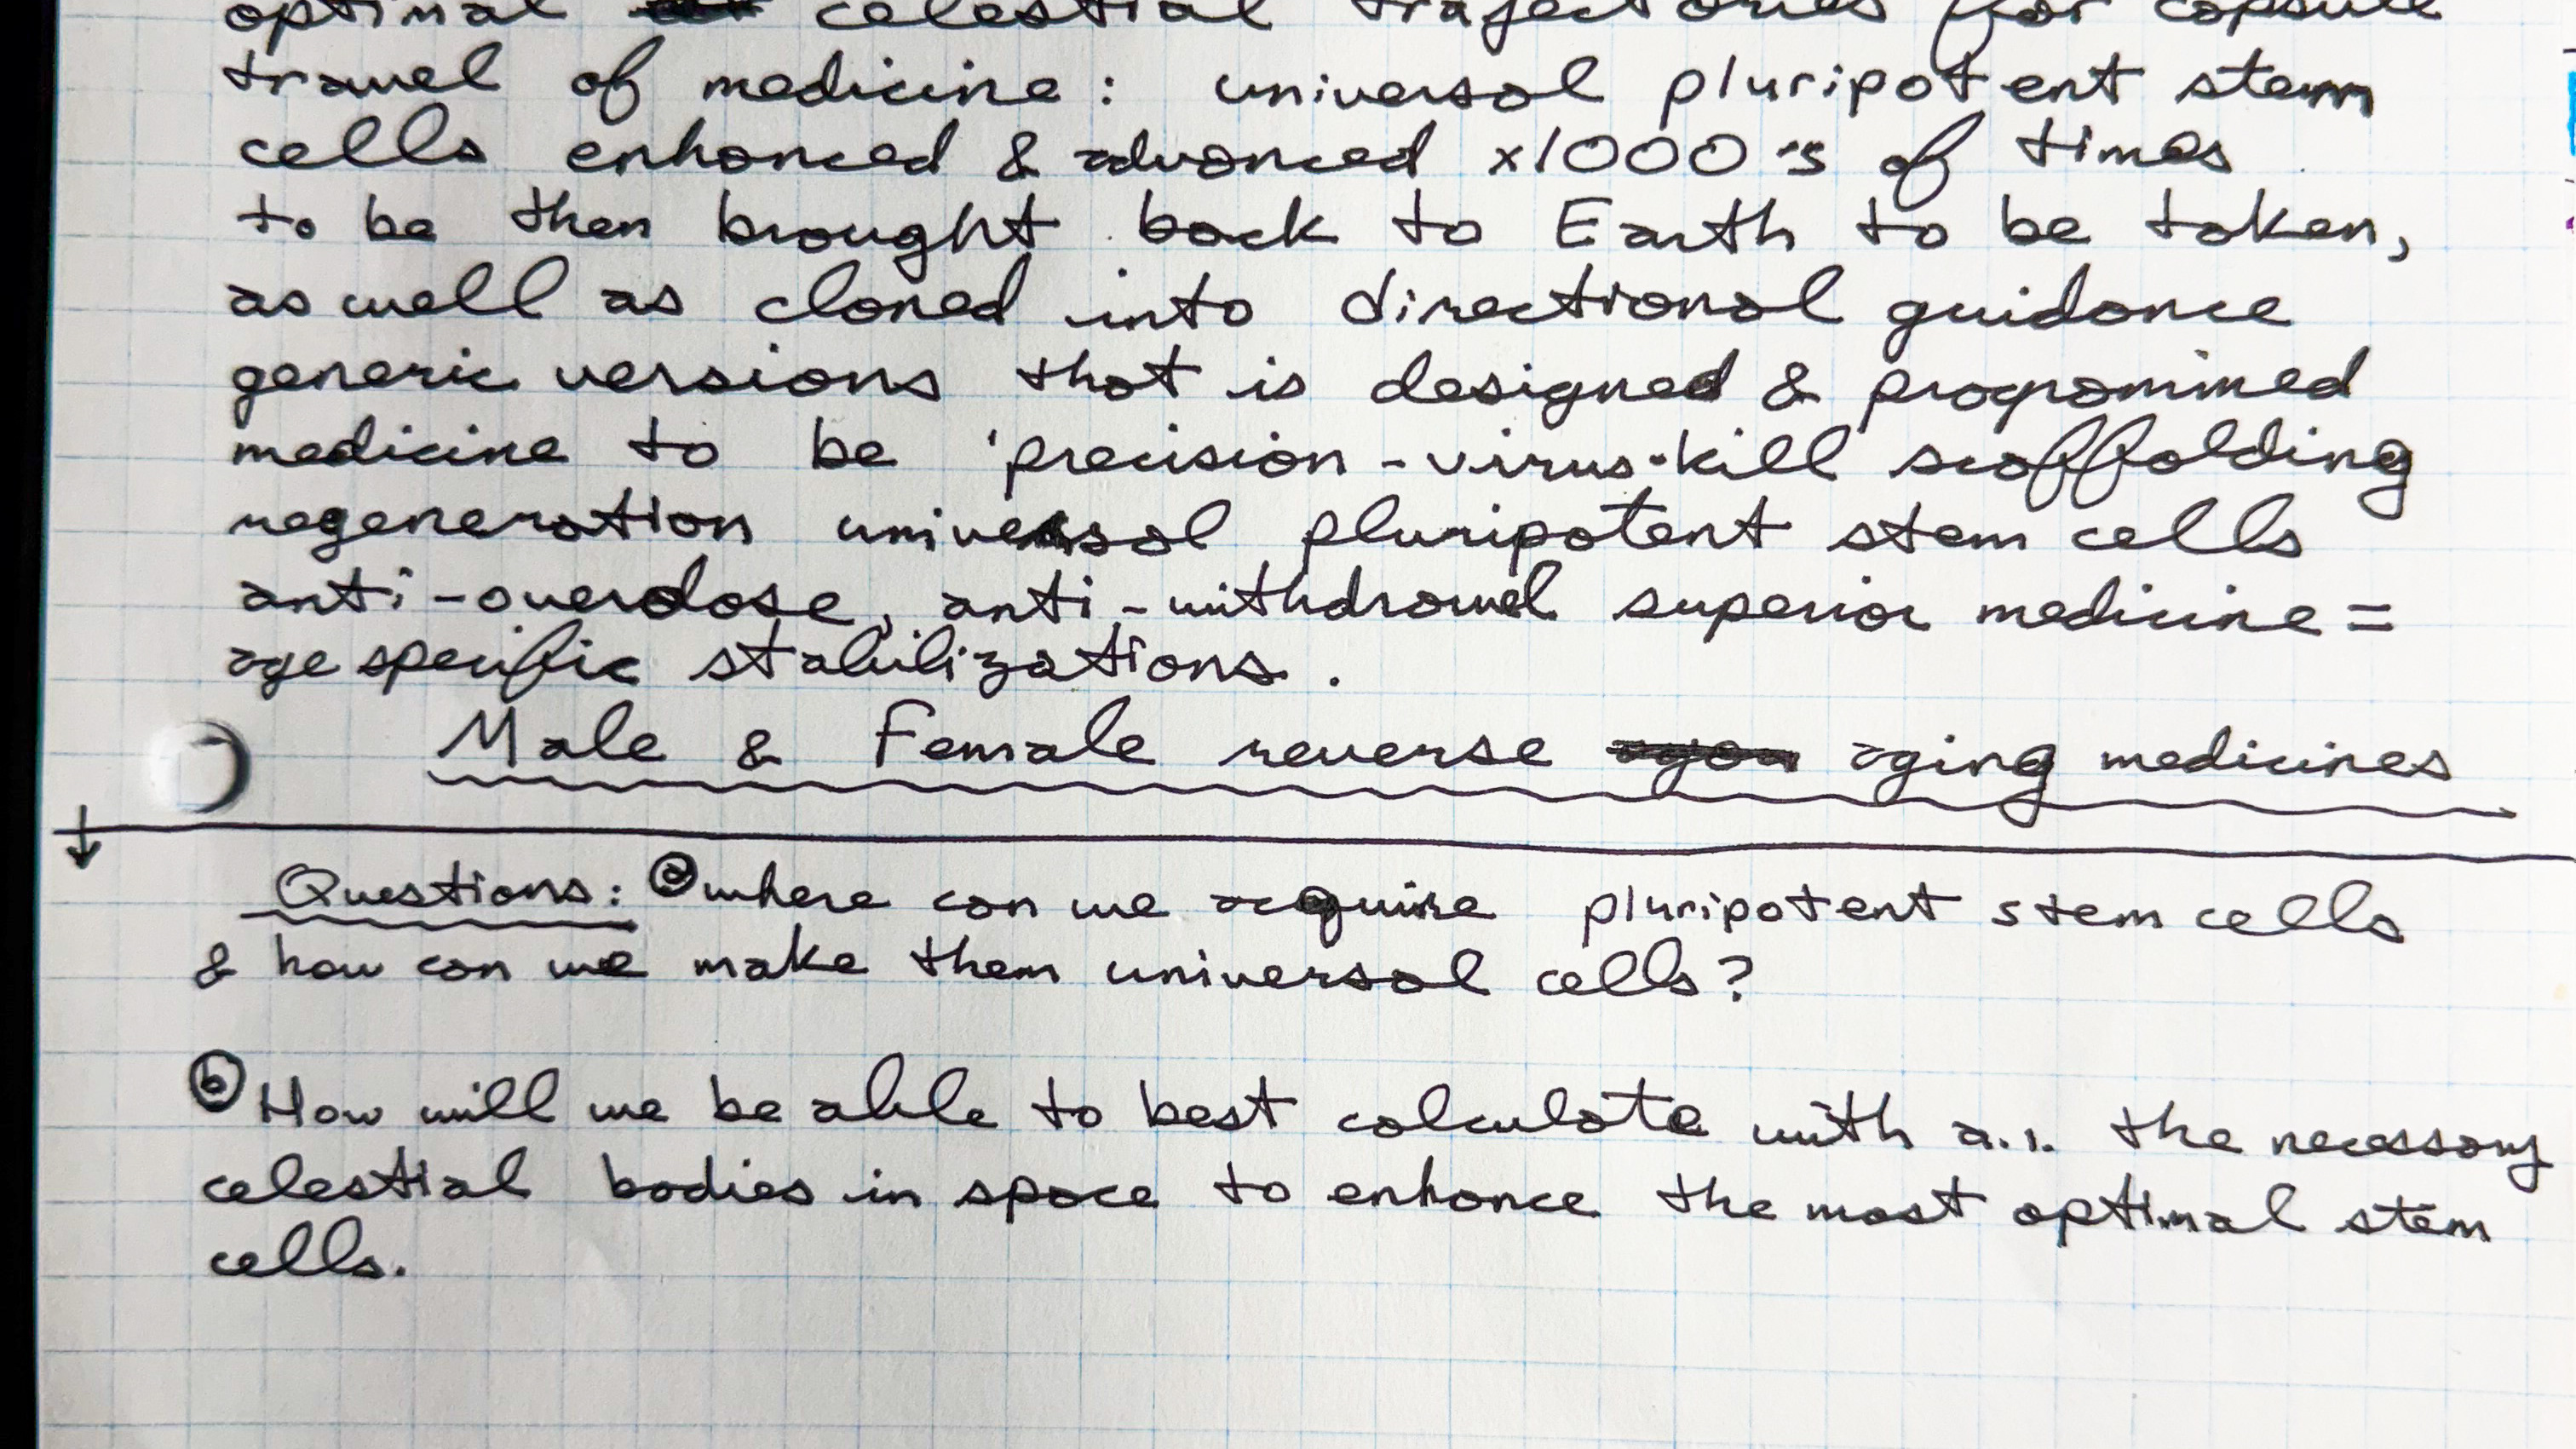 optimal celestial trajectories for capsule
travel of medicine: universal pluripotent stem
cells enhanced & advanced x1000's of times
to be then brought back to Earth to be taken,
as well as cloned into directional guidance
generic versions that is designed & programmed
medicine to be 'precision-virus-kill scaffolding
regeneration universal pluripotent stem cells
anti-overdose, anti-withdrawel superior medicine =
age specific stabilizations.
Male & Female reverse aging medicines
Questions: ⓐ where can we acquire pluripotent stem cells
& how can we make them universal cells?
ⓑ How will we be able to best calculate with a.i. the necessary
celestial bodies in space to enhance the most optimal stem
cells.